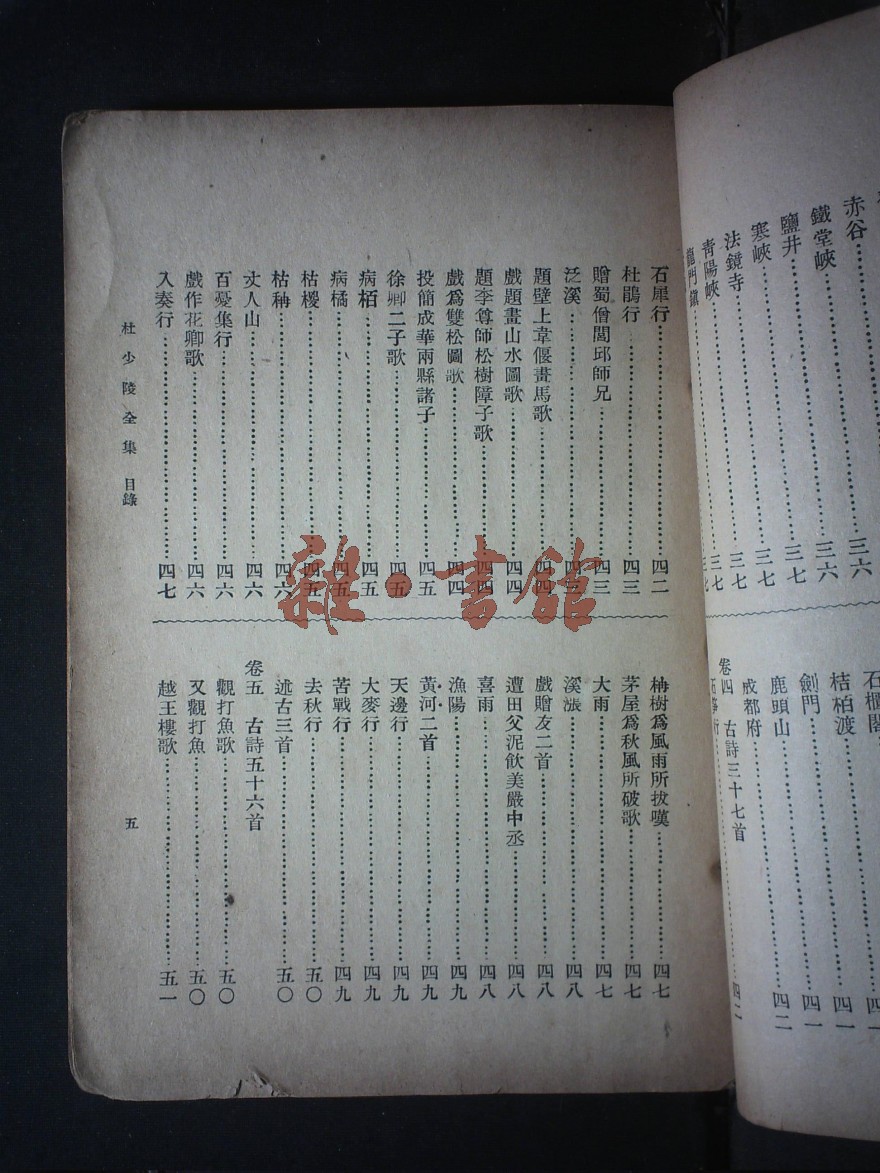 赤谷……三六
鐵堂峽……三六
鹽井……三七
寒峽……三七
法鏡寺……三七
青陽峽……三七
龍門鎮……三七
石櫃閣……四一
桔柏渡……四一
劍門……四一
鹿頭山……四二
成都府
卷四 古詩三十七首
石犀行……四二
杜鵑行……四三
贈蜀僧閭邱師兄……四三
泛溪……四三
題壁上韋偃畫馬歌……四四
戲題畫山水圖歌……四四
題李尊師松樹障子歌……四四
戲爲雙松圖歌……四四
投簡成華兩縣諸子……四五
徐卿二子歌……四五
病栢……四五
病橘……四五
枯椶……四五
枯柟……四六
丈人山……四六
百憂集行……四六
戲作花卿歌……四六
入奏行……四七
柟樹爲風雨所拔嘆……四七
茅屋爲秋風所破歌……四七
大雨……四七
溪漲……四八
戲贈友二首……四八
遭田父泥飲美嚴中丞……四八
喜雨……四八
漁陽……四九
黃河二首……四九
天邊行……四九
大麥行……四九
苦戰行……四九
去秋行……五〇
述古三首……五〇
卷五 古詩五十六首
觀打魚歌……五〇
又觀打魚……五〇
越王樓歌……五一
杜少陵全集 目錄
五
雜·書館